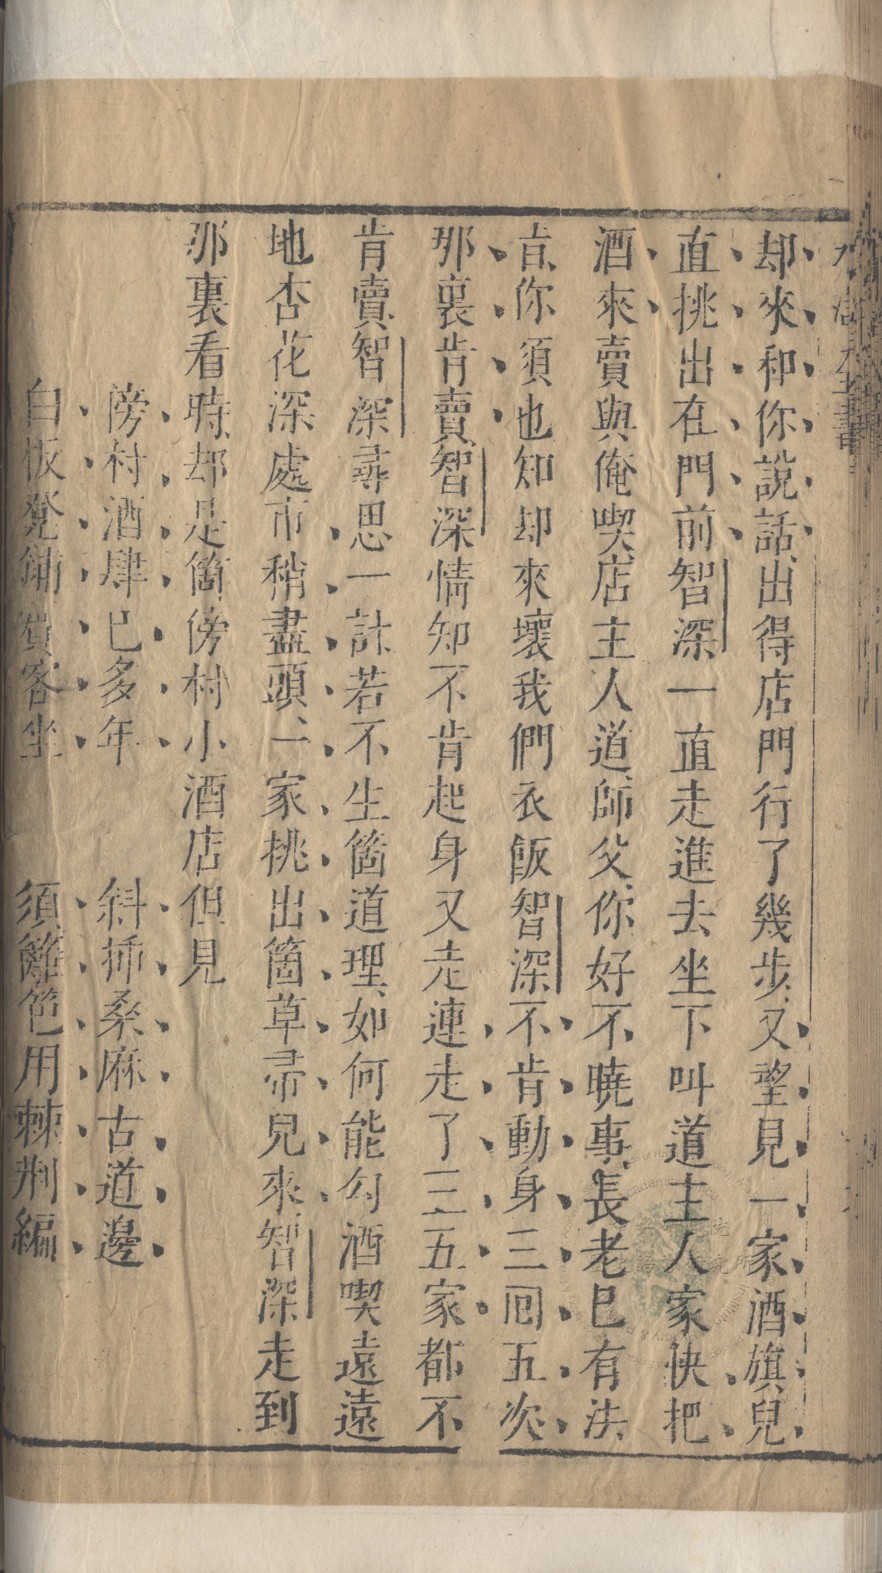 却來和你說話出得店門行了幾步又望見一家酒旗兒
直挑出在門前智深一直走進去坐下叫道主人家快把
酒來賣與俺喫店主人道師父你好不曉事長老已有法
旨你須也知却來壞我們衣飯智深不肯動身三回五次
那裏肯賣智深情知不肯起身又走連走了三五家都不
肯賣智深尋思一計若不生箇道理如何能勾酒喫遠遠
地杏花深處市稍盡頭一家挑出箇草帚兒來智深走到
那裏看時却是箇傍村小酒店但見
傍村酒肆已多年　斜插桑麻古道邊
白板凳鋪賓客坐　須籬笆用棘荆編